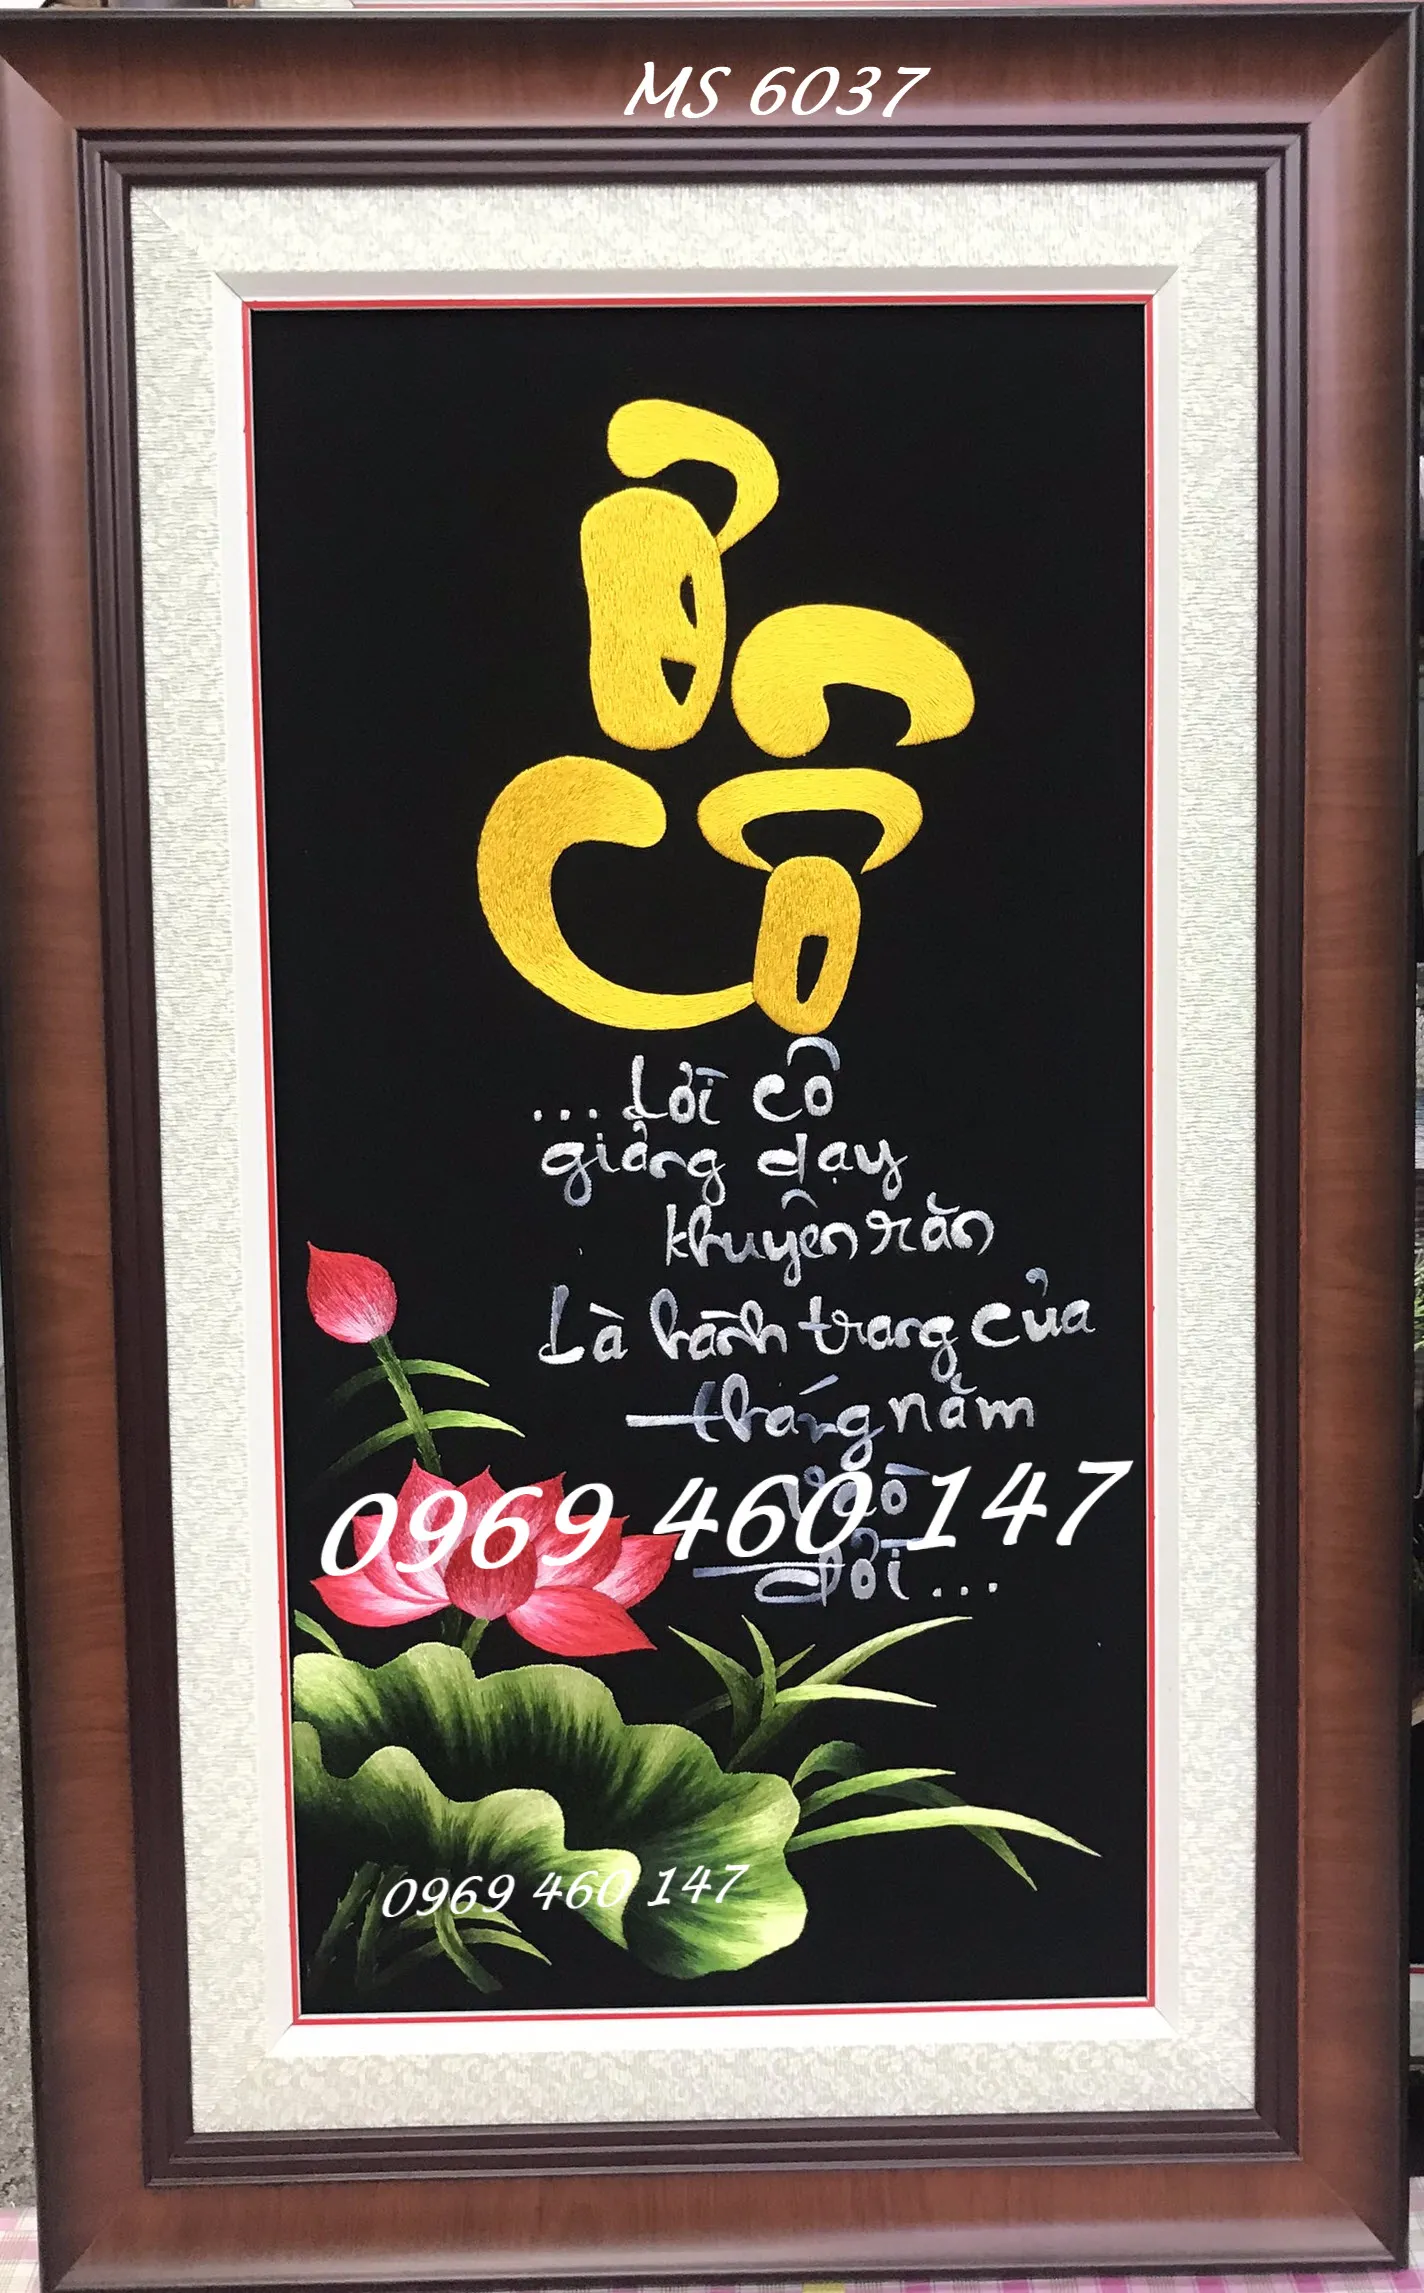 MS 6037
Ơn
Cô
... Lời cô
giảng dạy
khuyên răn
Là hành trang của
tháng năm
vào
0969 460 147
đời ...
0969 460 147